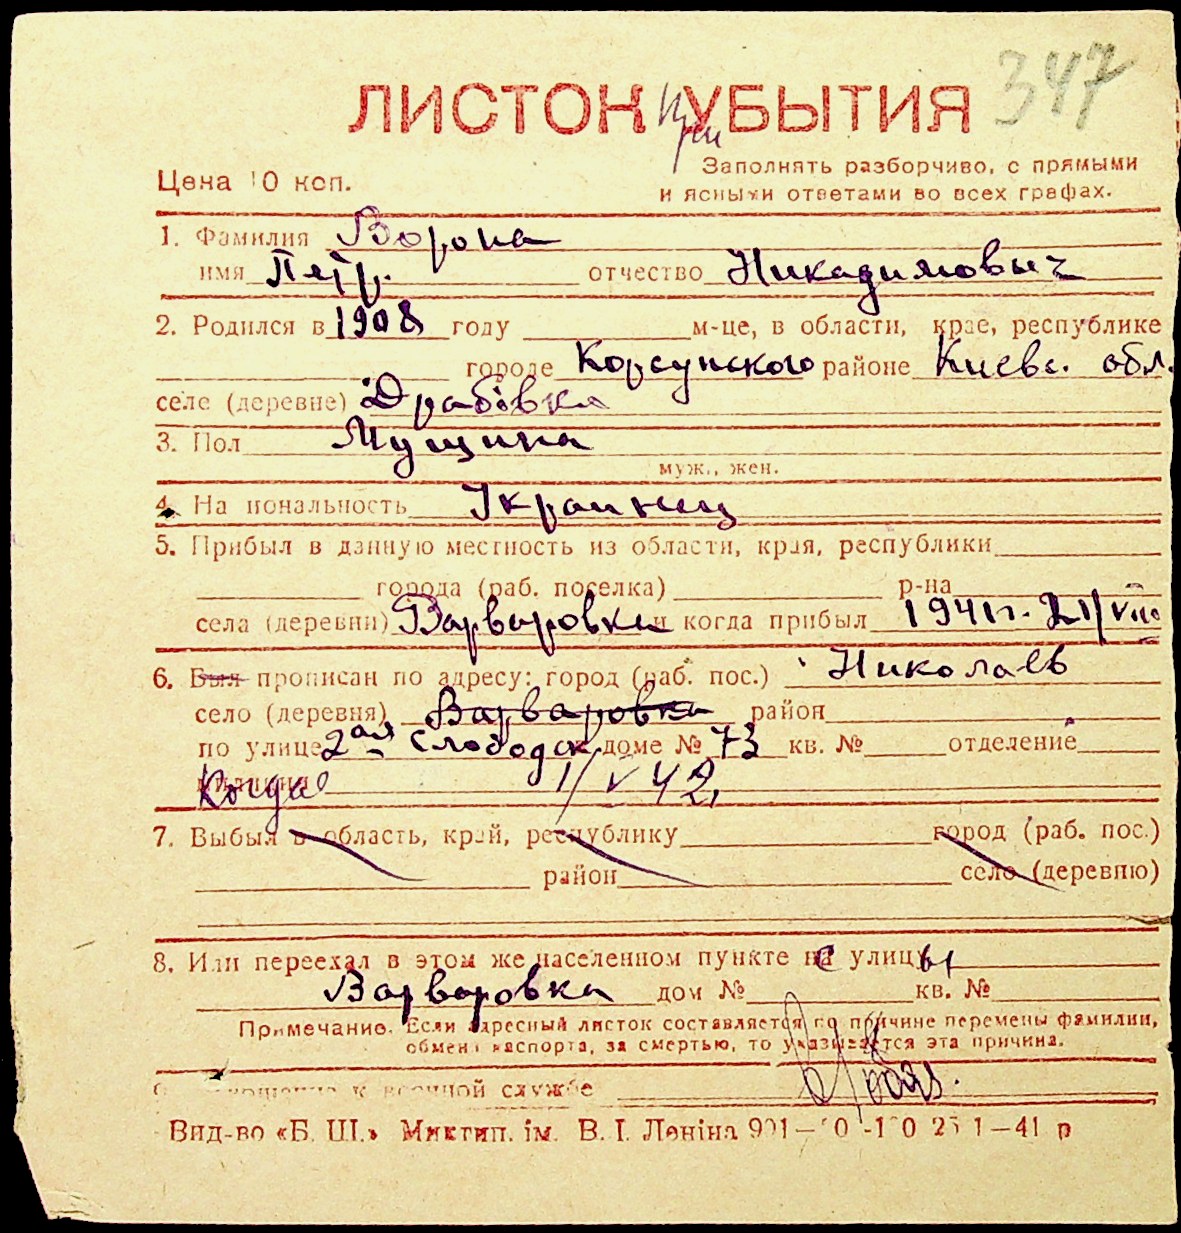 347
ЛИСТОК При УБЫТИЯ
Цена 10 коп.
Заполнять разборчиво, с прямыми
и ясными ответами во всех графах.
1. Фамилия Ворона
имя Петр. отчество Никадимовыч
2. Родился в 1908 году м-це, в области, крае, республике
городе Корсунского районе Киевс. обл.
селе (деревне) Драбівка
3. Пол Мущина
муж., жен.
4. Национальность Украинец
5. Прибыл в данную местность из области, края, республики
города (раб. поселка) р-на
села (деревни) Варваровка и когда прибыл 1941 г. 21/VIII
6. Был прописан по адресу: город (раб. пос.) Николаев
село (деревня) Варваровка район
по улице 2ая Слободск доме № 73 кв. № отделение
милиции Когда 1/V 42,
7. Выбыл в область, край, республику город (раб. пос.)
район село (деревню)
8. Или переехал в этом же населенном пункте с улицы
Варваровка дом № кв. №
Примечание. Если адресный листок составляется по причине перемены фамилии,
обмена паспорта, за смертью, то указывается эта причина.
9. Отношение к военной службе
Вид-во «Б. Ш.» Миктип. ім. В. І. Леніна